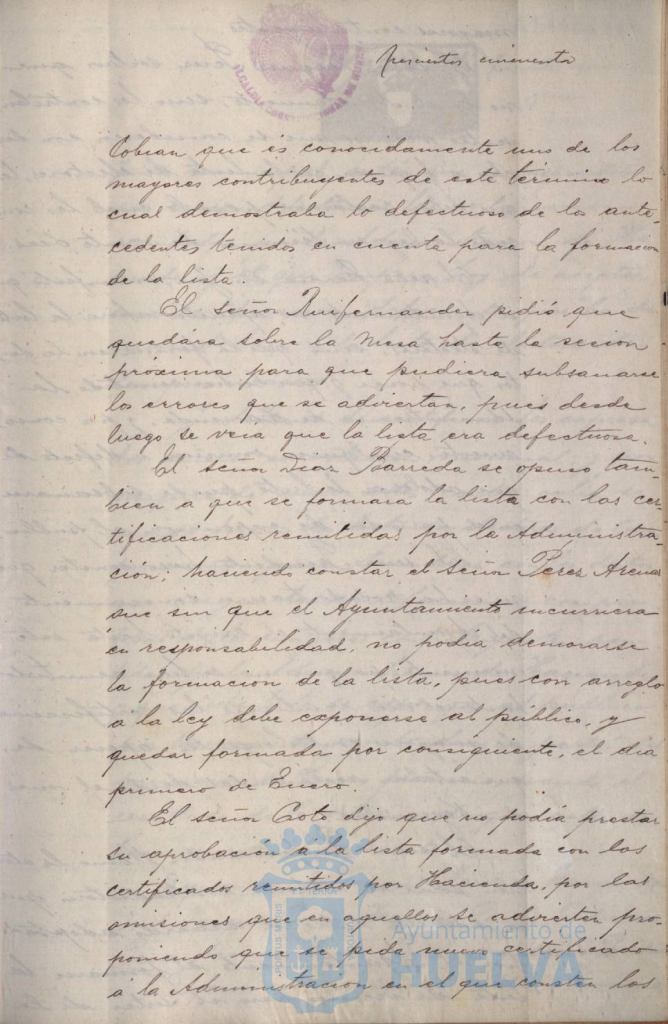 trescientos cincuenta
Cobian que és conocidamente uno de los
mayores contribuyentes de este término lo
cual demostraba lo defectuoso de los ante-
cedentes tenidos en cuenta para la formacion
de la lista.
El señor Ruifernandez pidió que
quedára sobre la Mesa hasta la sesion
próxima para que pudiera subsanarse
los errores que se adviertan, pues desde
luego se veia que la lista era defectuosa.
El señor Diaz Barreda se opuso tam-
bien a que se formara la lista con las cer-
tificaciones remitidas por la Administra-
ción; haciendo constar el señor Perez Arenas
que sin que el Ayuntamiento incurriera
en responsabilidad, no podia demorarse
la formacion de la lista, pues con arreglo
á la ley debe exponerse al público, y
quedar formada por consiguiente, el dia
primero de Enero.
El señor Coto dijo que no podia prestar
su aprobación á la lista formada con los
certificados remitidos por Hacienda, por las
omisiones que en aquellos se advierten pro-
poniendo que se pida nuevo certificado
á la Administracion en el que consten los
Ayuntamiento de
HUELVA